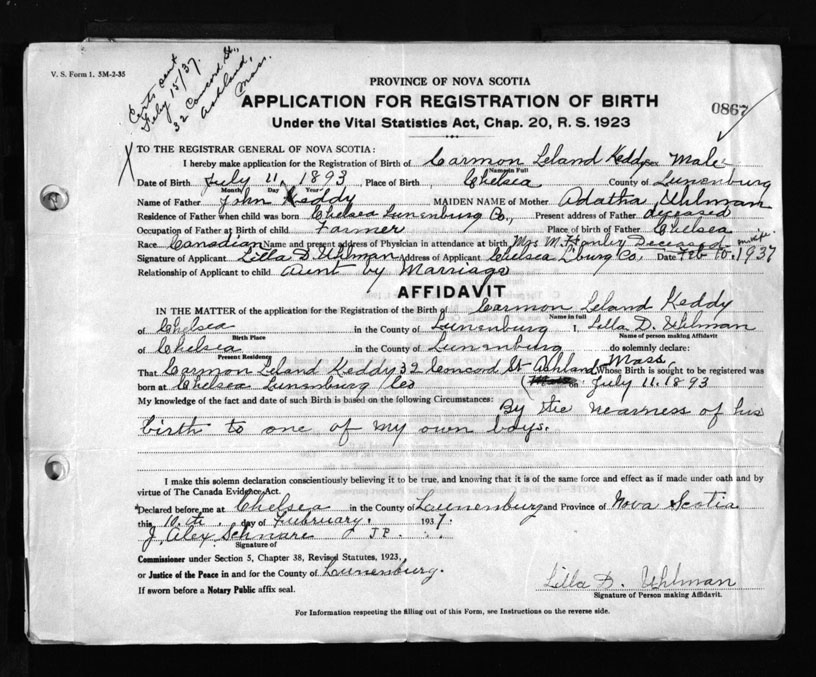 V. S. Form 1. 5M-2-35
Certs sent
July 15/37.
32 Concord St.,
Ashland,
Mass.
PROVINCE OF NOVA SCOTIA
APPLICATION FOR REGISTRATION OF BIRTH
0867
Under the Vital Statistics Act, Chap. 20, R. S. 1923
TO THE REGISTRAR GENERAL OF NOVA SCOTIA:
I hereby make application for the Registration of Birth of Carmon Leland Keddy Sex Male
Name in Full
Date of Birth July 11, 1893, Place of Birth, Chelsea County of Lunenburg
Month Day Year
Name of Father John Keddy MAIDEN NAME of Mother Adatha Uhlman
Residence of Father when child was born Chelsea Lunenburg Co., Present address of Father deceased
Occupation of Father at Birth of child Farmer Place of birth of Father Chelsea
Race Canadian Name and present address of Physician in attendance at birth Mrs M. Deceased
Signature of Applicant Lilla D. Uhlman Address of Applicant Chelsea L'burg Co. Date Feb 10. 1937
Relationship of Applicant to child Aunt by Marriage
AFFIDAVIT
IN THE MATTER of the application for the Registration of the Birth of Carmon Leland Keddy
Name in full
of Chelsea in the County of Lunenburg I, Lilla D. Uhlman
Birth Place Name of person making Affidavit
of Chelsea in the County of Lunenburg do solemnly declare:
Present Residence
That Carmon Leland Keddy 32 Concord St Ashland Mass. Whose Birth is sought to be registered was
born at Chelsea Lunenburg Co July 11. 1893
My knowledge of the fact and date of such Birth is based on the following Circumstances: By the nearness of his
birth to one of my own boys.
I make this solemn declaration conscientiously believing it to be true, and knowing that it is of the same force and effect as if made under oath and by
virtue of The Canada Evidence Act.
Declared before me at Chelsea in the County of Lunenburg and Province of Nova Scotia
this 10.th. day of February. 1937.
J Alex Schnare J P.
Signature of
Commissioner under Section 5, Chapter 38, Revised Statutes, 1923,
or Justice of the Peace in and for the County of Lunenburg.
If sworn before a Notary Public affix seal.
Lilla D. Uhlman
Signature of Person making Affidavit.
For Information respecting the filling out of this Form, see Instructions on the reverse side.